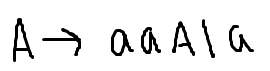 A → aaA | a